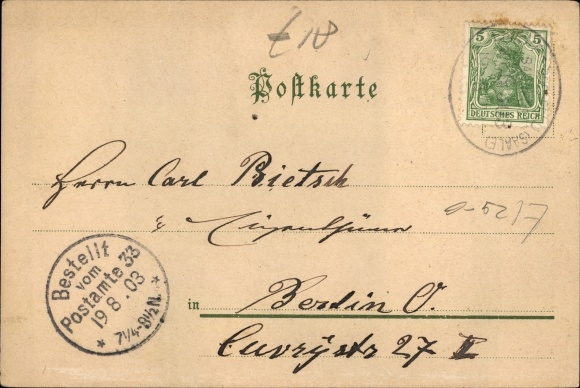 £ 18
5 5
DEUTSCHES REICH
(SAALE)
Postkarte
Herrn Carl Bietsch
a-52/7
Bestellt
vom
Postamte 33
19.8.03
* 7¼-8½N. *
in Berlin O.
Cuvrystr 27 II